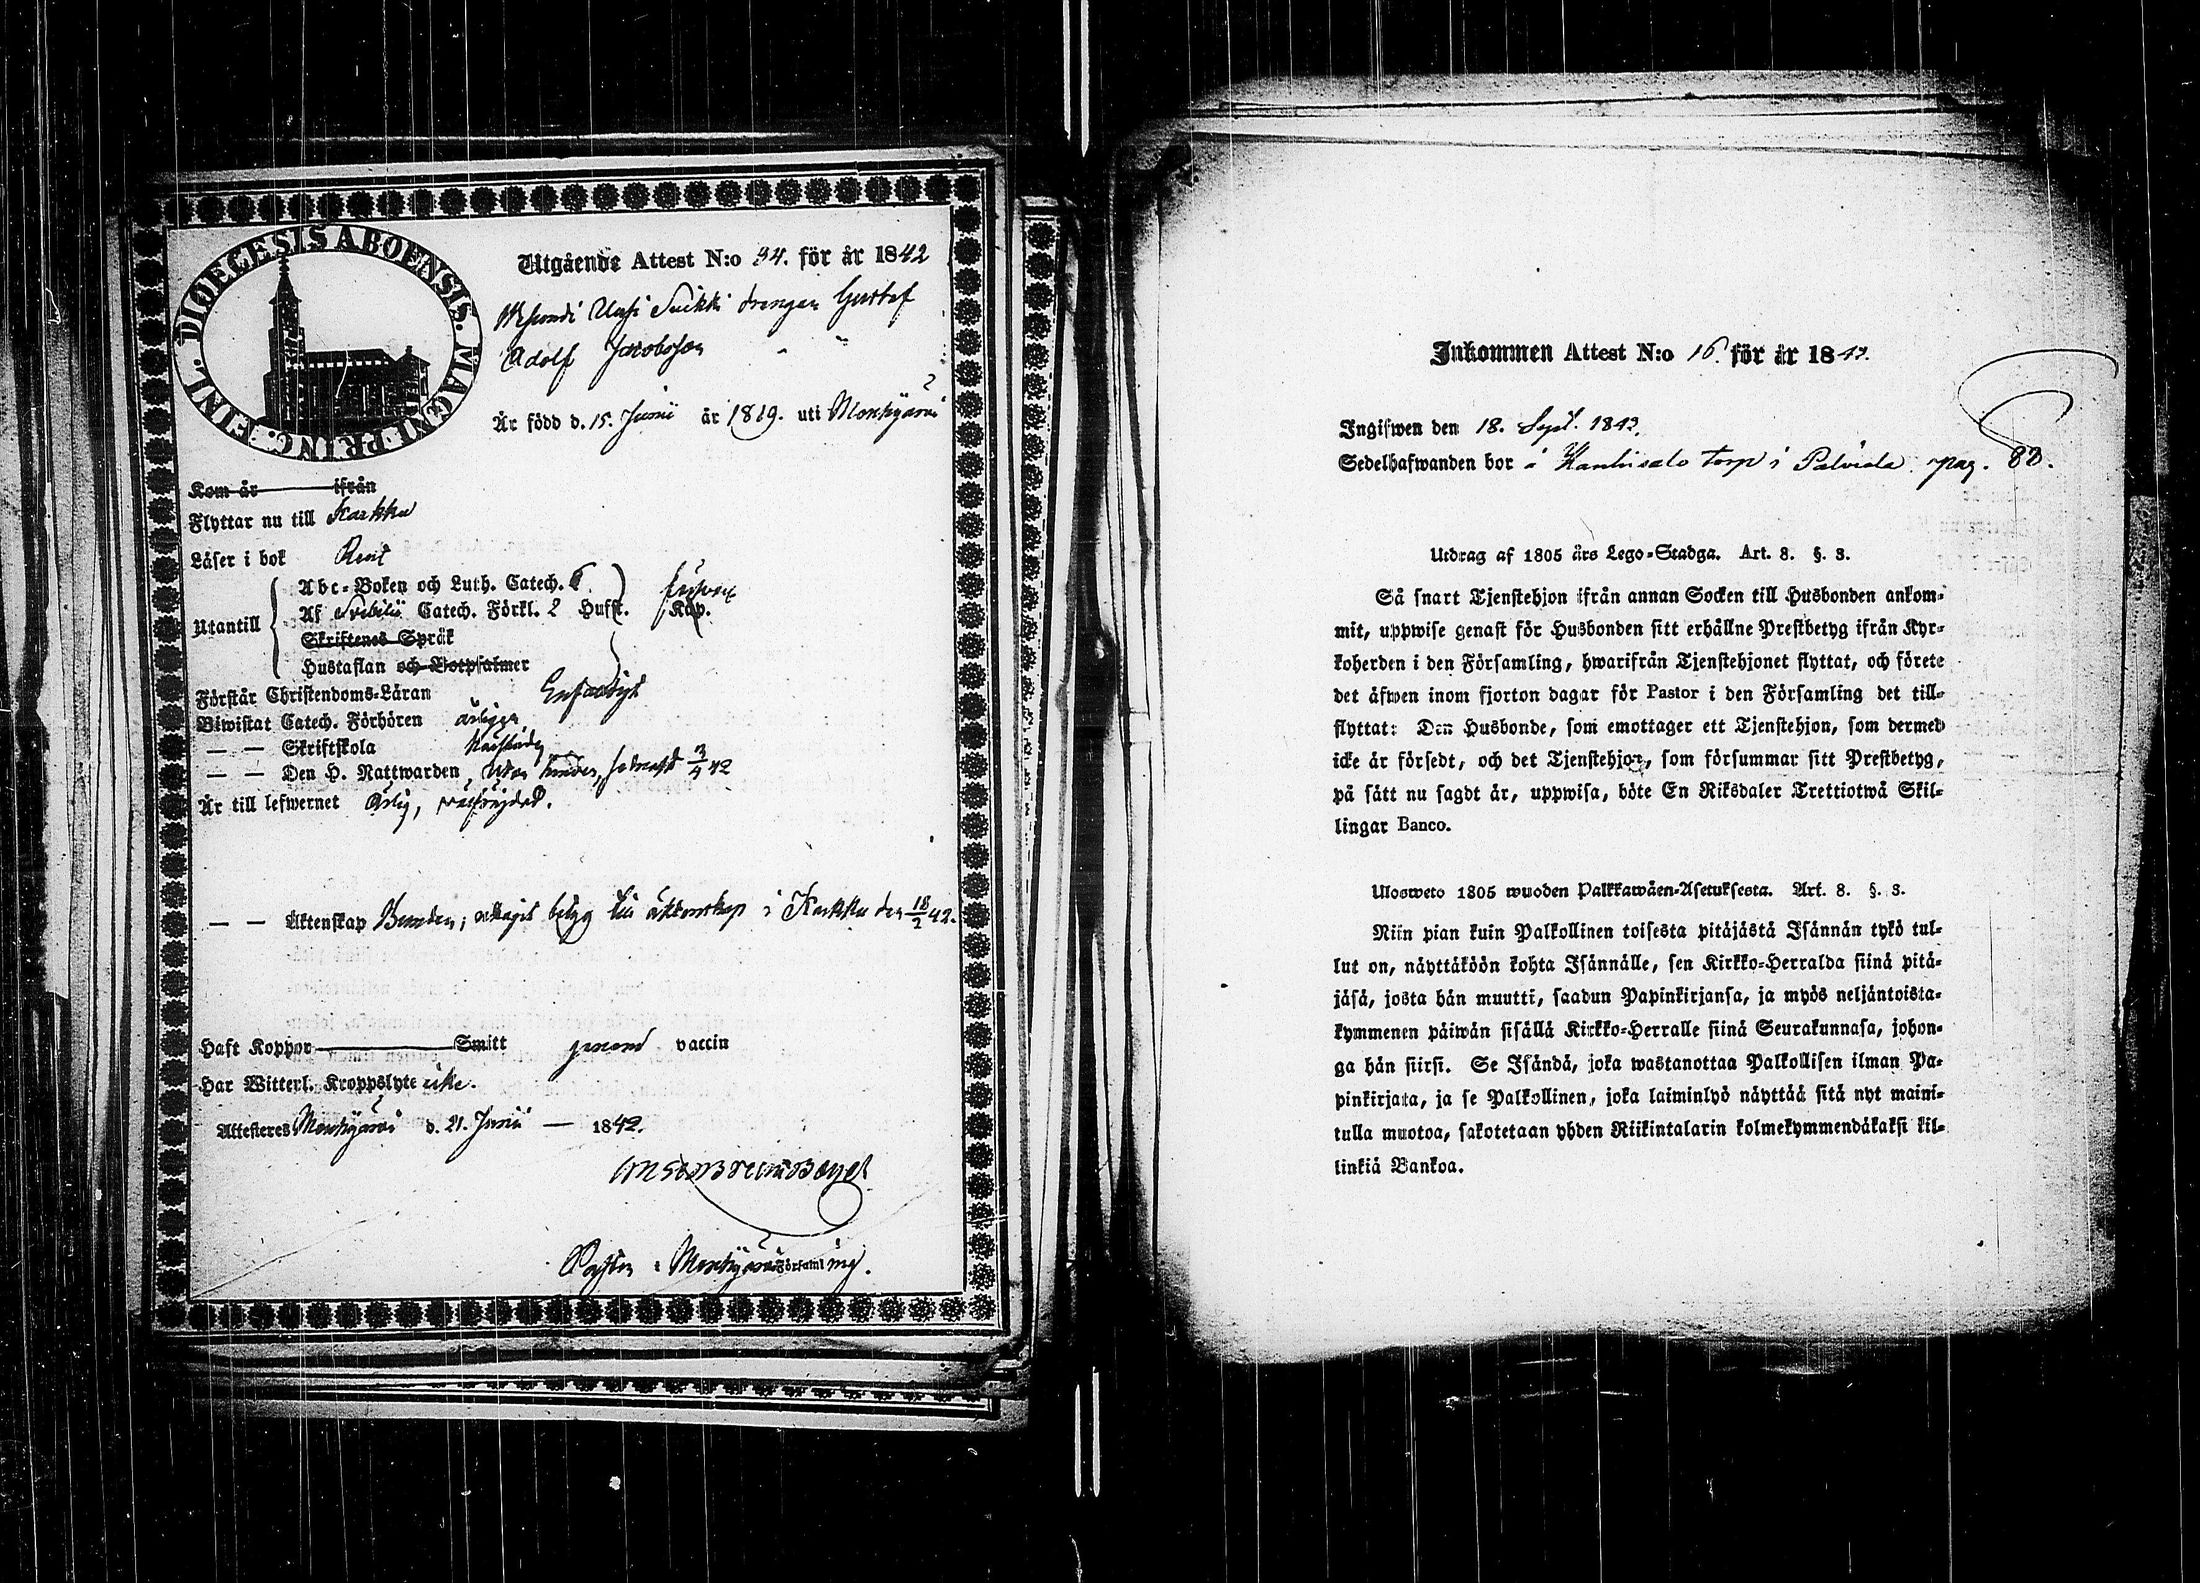 DIOECESIS ABOENSIS. MAGNI PRINC. FINL.
Utgående Attest N:o 34. för år 1842
drengen Gustaf
Adolf Jacobsson
Är född d. 15. Junii år 1819. uti Mouhijärvi
Kom år ifrån
Flyttar nu till Karkku
Läser i bok Rent
Abc-Boken och Luth. Catech. 6
Utantill Af Svebilii Catech. Förkl. 2 Hufst. Kap.
Skriftenes Språk
Hustaflan och Botpsalmer
Förstår Christendoms-Läran Enfaldigt
Biwistat Catech. Förhören årligen
— — Skriftskola
— — Den H. Nattwarden, utan hinder, senast 3/4 42
Är till lefwernet Ärlig, välfrejdad.
— — Äktenskap Bunden; uttagit betyg till äktenskap i Karkku den 18/2 42.
Haft Koppor Smitt genom vaccin
Har Witterl. Kroppslyte icke.
Attesteras Mouhijärvi d. 21. Junii — 1842.
Pastor i Mouhijärvi Församling.
Inkommen Attest N:o 16. för år 1842.
Ingifwen den 18. Sept. 1842.
Sedelhafwanden bor å torp i Palviala. pag. 88.
Utdrag af 1805 års Lego-Stadga. Art. 8. §. 3.
Så snart Tjenstehjon ifrån annan Socken till Husbonden ankom-
mit, uppwise genast för Husbonden sitt erhållne Prestbetyg ifrån Kyr-
koherden i den Församling, hwarifrån Tjenstehjonet flyttat, och förete
det äfwen inom fjorton dagar för Pastor i den Församling det till-
flyttat: Den Husbonde, som emottager ett Tjenstehjon, som dermed
icke är försedt, och det Tjenstehjon, som försummar sitt Prestbetyg,
på sätt nu sagdt är, uppwisa, böte En Riksdaler Trettiotwå Skil-
lingar Banco.
Ulosweto 1805 wuoden Palkkawäen-Asetuksesta. Art. 8. §. 3.
Niin pian kuin Palkollinen toisesta pitäjästä Isännän tykö tul-
lut on, näyttäköön kohta Isännälle, sen Kirkko-Herralda siinä pitä-
jäsä, josta hän muutti, saadun Papinkirjansa, ja myös neljäntoista-
kymmenen päiwän sisällä Kirkko-Herralle siinä Seurakunnasa, johon-
ga hän siirsi. Se Isändä, joka wastanottaa Palkollisen ilman Pa-
pinkirjata, ja se Palkollinen, joka laiminlyö näyttää sitä nyt maini-
tulla muotoa, sakotetaan yhden Riikintalarin kolmekymmendäkaksi kil-
linkiä Bankoa.